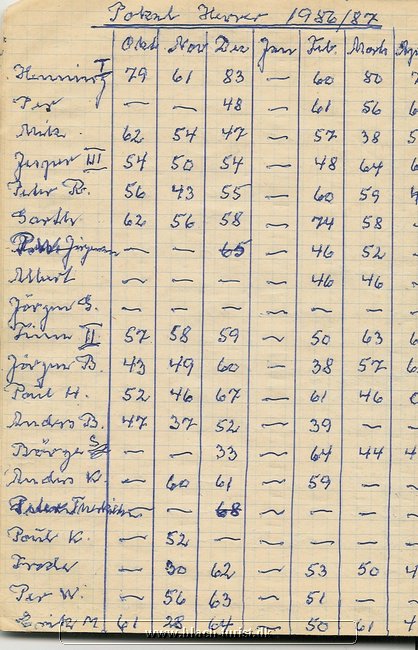 Pokal Herrer 1986/87
Okt Nov Dec Jan Feb Marts Apr
Henning I 79 61 83 — 60 80 7
Per — — 48 — 61 56 6
Mik 62 54 47 — 57 38 5
Jesper III 54 50 54 — 48 64 6
Peter R. 56 43 55 — 60 59 4
Garth 62 56 58 — 74 58 —
Jörgensen — — 65 — 46 52 —
Albert — — — — 46 46 —
Jörgen G. — — — — — — —
Finn II 57 58 59 — 50 63 6
Jörgen B. 43 49 60 — 38 57 6
Paul H. 52 46 67 — 61 46
Anders B. 47 37 52 — 39 — —
Börge — — 33 — 64 44 4
Anders K. — 60 61 — 59 — —
Peter — — 68 — — — —
Paul K. — 52 — — — — —
Frode — 30 62 — 53 50 4
Per W. — 56 63 — 51 — —
M. 61 28 64 — 50 61 4